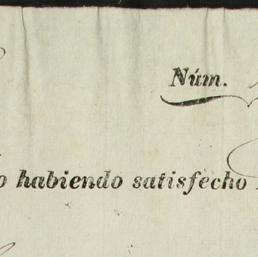 Núm.
o habiendo satisfecho